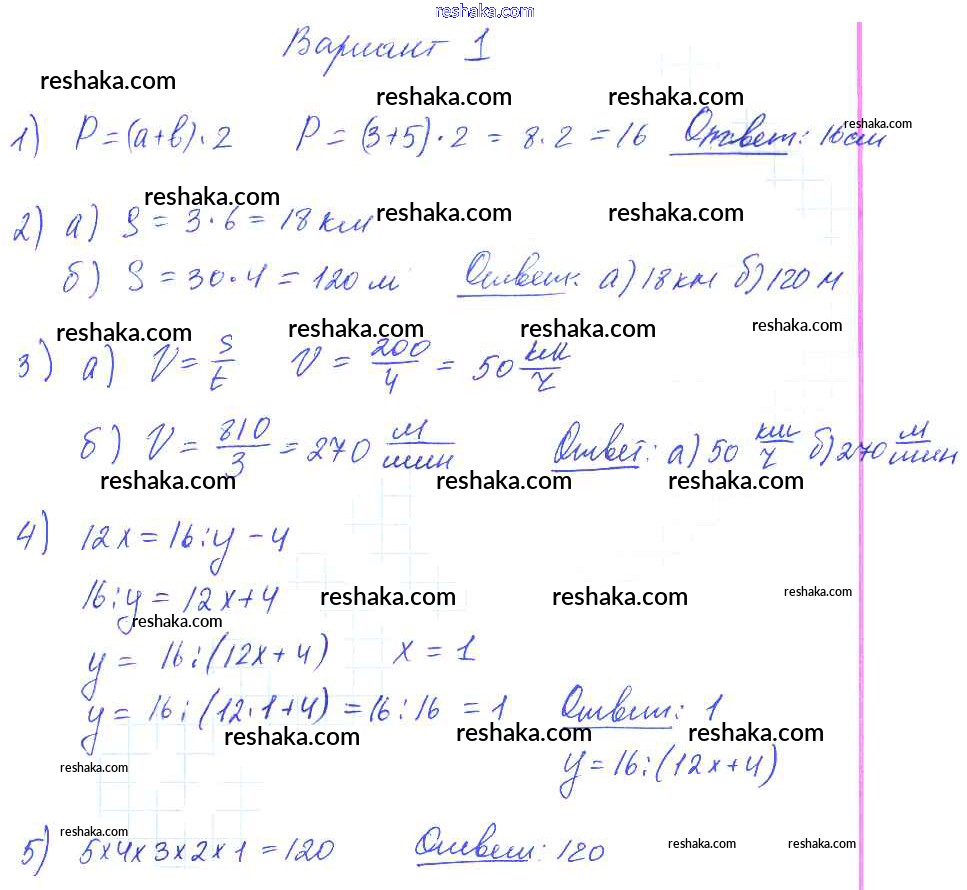 reshaka.com
Вариант 1
reshaka.com
reshaka.com reshaka.com
reshaka.com
1) P = (a+b)·2 P = (3+5)·2 = 8·2 = 16 Ответ: 16см
reshaka.com
reshaka.com reshaka.com
2) а) S = 3·6 = 18 км
б) S = 30·4 = 120 м Ответ: а) 18 км б) 120 м
reshaka.com reshaka.com reshaka.com reshaka.com
3) а) V = S/t V = 200/4 = 50 км/ч
б) V = 810/3 = 270 м/мин Ответ: а) 50 км/ч б) 270 м/мин
reshaka.com reshaka.com reshaka.com
4) 12x = 16:y - 4
16:y = 12x+4
reshaka.com reshaka.com reshaka.com
reshaka.com
y = 16:(12x+4) x = 1
y = 16:(12·1+4) = 16:16 = 1 Ответ: 1
reshaka.com reshaka.com reshaka.com
y = 16:(12x+4)
reshaka.com
reshaka.com
5) 5x4x3x2x1 = 120 Ответ: 120
reshaka.com reshaka.com